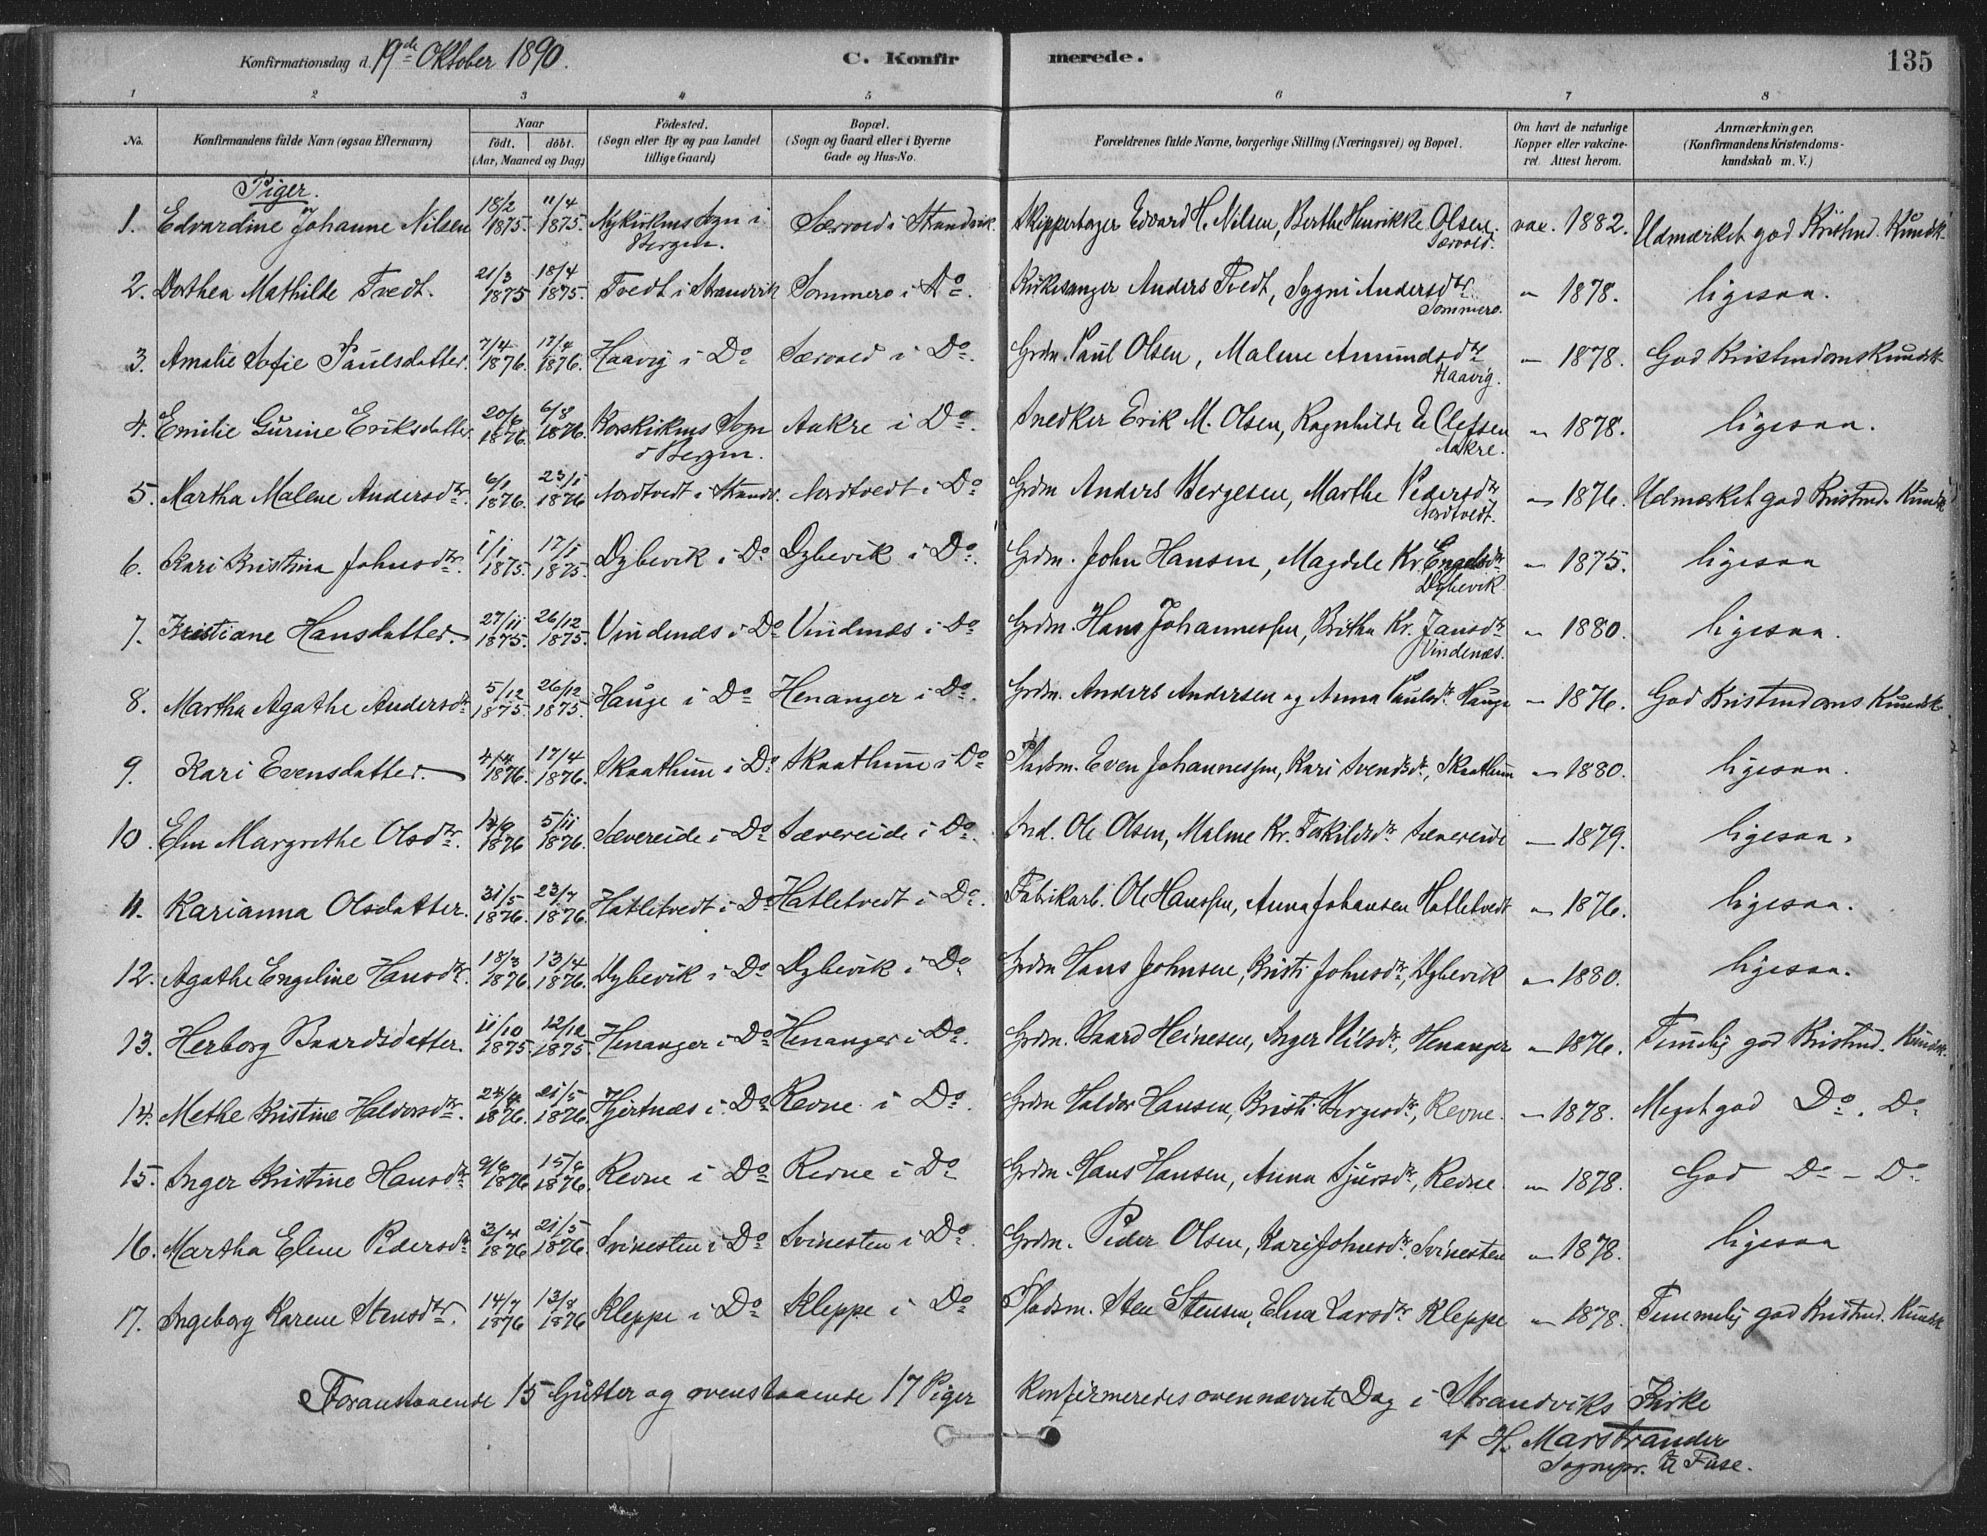 Konfirmationsdag d. 19de Oktober 1890. C. Konfirmerede. 135
1 2 3 4 5 6 7 8
No. Konfirmandens fulde Navn (ogsaa Efternavn) Naar født. døbt. (Aar, Maaned og Dag) Fødested. (Sogn eller By og paa Landet tillige Gaard) Bopæl. (Sogn og Gaard eller i Byerne Gade og Hus-No. Forældrenes fulde Navne, borgerlige Stilling (Næringsvei) og Bopæl. Om havt de naturlige Kopper eller vakcineret. Attest herom. Anmærkninger. (Konfirmandens Kristendomskundskab m. V.)
Piger.
1. Edvardine Johanne Nilsen 18/2 1875. 11/4 1875. Nykirkens Sogn i Bergen. Særvold i Strandvik. Skipperborger Edvard H. Nilsen, Berthe Henrikke Olsen. Særvold. vac. 1882. Udmærket god Kristend. Kundsk.
2. Dorthea Mathilde Tvedt. 21/3 1875 18/4 1875. Tvedt i Strandvik Sommero i Do. Kirkesanger Anders Tvedt, Sygni Andersdtr Sommero. " 1878. ligesaa.
3. Amalie Sofie Paulsdatter. 7/4 1876. 17/4 1876. Haavig i Do Særvold i Do. Grdm. Paul Olsen, Malene Amundsdtr Haavig. " 1878. God Kristendomskundsk.
4. Emilie Gurine Eriksdatter 20/6 1876. 6/8 1876. Korskirkens Sogn i Bergen. Aakre i Do. Snedker Erik M. Olsen, Ragnhilde E. Clefsen Aakre. " 1878. ligesaa.
5. Martha Malene Andersdtr. 6/1 1876. 23/1 1876 Nordtvedt i Strandv. Nordtvedt i Do Grdm Anders Bergesen, Marthe Pedersdtr Nordtvedt. " 1876. Udmærket god Kristend. Kundsk
6. Kari Kristina Johnsdtr. 1/1 1875. 17/1 1875. Dybevik i Do Dybevik i Do. Grdm. John Hansen, Magdele Kr. Engelsdtr Dybevik. " 1875. ligesaa
7. Kristiane Hansdatter. 27/11 1875. 26/12 1875. Vindenæs i Do Vindenæs i Do Grdm. Hans Johannessen, Britha Kr. Jansdtr Vindenæs. " 1880. ligesaa.
8. Martha Agathe Andersdtr 5/12 1875. 26/12 1875. Hauge i Do Henanger i Do. Grdm. Anders Andersen og Anna Paulsdr. Hauge " 1876. God Kristendoms Kundsk.
9. Kari Evensdatter. 4/4 1876. 17/4 1876. Skaathun i Do Skaathun i Do Pladsm. Even Johannessen, Kari Svendsdr., Skaathun " 1880. ligesaa.
10. Elen Margrethe Olsdtr. 14/9 1876 5/11 1876. Sævereide i Do Sævereide i Do. Ind. Ole Olsen, Malene Kr. Torkildsdtr Sævereide " 1879. ligesaa.
11. Karianna Olsdatter. 31/5 1876. 23/7 1876 Hatletvedt i Do Hatletvedt i Do. Fabrikarb. Ole Hanssen, Anna Johansen Hatletvedt " 1876. ligesaa.
12. Agathe Engeline Hansdtr. 18/3 1876. 13/4 1876. Dybevik i Do Dybevik i Do Grdm Hans Johnsen, Kristi Johnsdtr, Dybevik " 1880. ligesaa.
13. Herborg Baardsdatter. 11/10 1875. 12/12 1875. Henanger i Do Henanger i Do. Grdm. Baard Heinesen, Inger Nilsdtr, Henanger " 1876. Temmelig god Kristend. Kundsk.
14. Methe Kristine Haldorsdtr. 24/4 1876. 21/5 1876. Hjertnæs i Do Revne i Do. Grdm Haldor Hansen, Kristi Bergesdtr, Revne. " 1878. Meget god Do. Do
15. Inger Kristine Hansdtr 9/6 1876 15/6 1876. Revne i Do Revne i Do Grdm. Hans Hansen, Anna Sjursdtr, Revne " 1878. God Do - Do
16. Martha Elene Pedersdtr 3/4 1876. 21/5 1876. Svinesten i Do Svinesten i Do. Grdm. Peder Olsen, Kari Johnsdtr. Svinesten " 1878. ligesaa
17. Ingeborg Karene Stensdtr. 14/7 1876 13/8 1876 Kleppe i Do Kleppe i Do Pladsm. Sten Stensen, Elna Larsdtr Kleppe " 1878. Temmelig god Kristend. Kundsk
Foranstaaende 15 Gutter og ovenstaaende 17 Piger konfirmeredes ovennævnte Dag i Strandviks Kirke
af H. Marstrander
Sognepr. til Fuse.